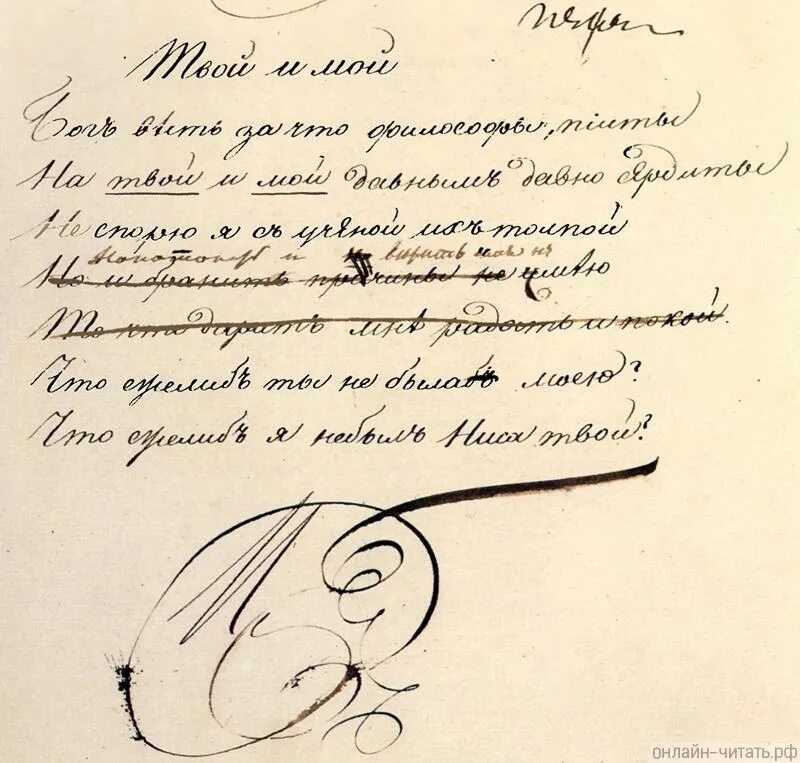 Твой и мой
Богъ вѣсть за что философы, піиты
На твой и мой давнымъ давно сердиты
Не спорю я съ учёной ихъ толпой
и вѣрить имъ не
Но и бранить причины не имѣю
То что даритъ мнѣ радость и покой.
Что ежелибъ ты не былабъ моею?
Что ежелибъ я небылъ Ниса твой?
онлайн-читать.рф